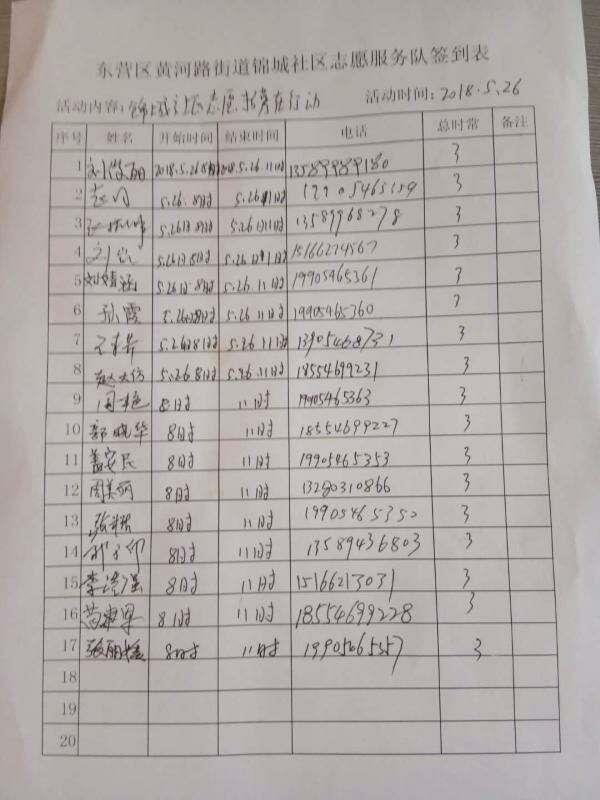 东营区黄河路街道锦城社区志愿服务队签到表
活动内容:锦城社区志愿服务在行动 活动时间:2018.5.26
序号 姓名 开始时间 结束时间 电话 总时常 备注
1 刘俊丽 2018.5.26 8时 2018.5.26.11时 13589989180 3
2 5.26.8时 5.26 11时 3
3 5.26日8时 5.26日11时 13589968278 3
4 刘 5.26日8时 5.26日11时 15166274567 3
5 刘婧涵 5.26日8时 5.26.11时 19905465361 3
6 孙霞 5.26日8时 5.26.11时 19905465360 3
7 5.26日8时 5.26.11时 13905468731 3
8 赵 5.26.8时 5.26.11时 18554699231 3
9 周艳 8时 11时 19905465363 3
10 郭晓华 8时 11时 18554699227 3
11 盖安民 8时 11时 19905465353 3
12 周美丽 8时 11时 13280310866 3
13 张 8时 11时 19905465350 3
14 8时 11时 13589436803 3
15 李清强 8时 11时 15166213031 3
16 苗 8时 11时 18554699228 3
17 张丽 8时 11时 3
18
19
20